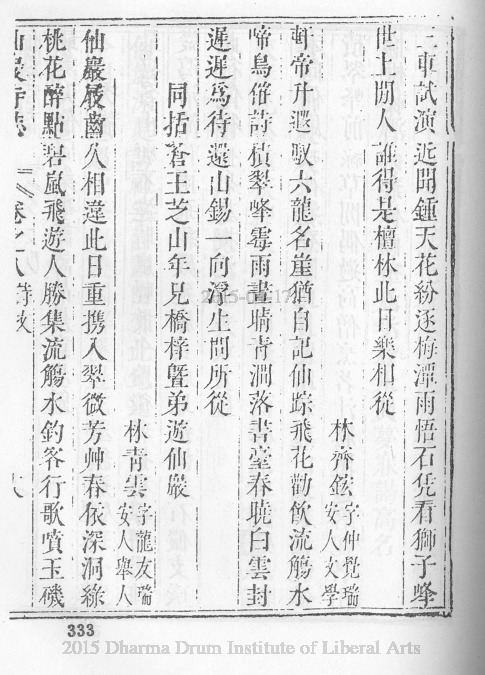 三車試演近聞鍾天花紛逐梅潭雨悟石凭看獅子峰
世上閒人誰得是檀林此日樂相從
林齊鋐字仲覺瑞安人文學
軒帝升遐馭六龍名崖猶自記仙踪飛花勸飲流觴水
啼鳥俗詩積翠峰霉雨晝晴靑澗落書臺春曉白雲封
遲遲爲待還山錫一向浮生問所從
同括蒼王芝山年兄橋梓曁弟遊仙巖
林靑雲字龍友瑞安人舉人
仙巖屐齒久相違此日重携入翠微芳艸春依深洞綠
桃花醉點碧嵐飛遊人勝集流觴水釣客行歌噴玉磯
仙巖寺志 卷之八 詩 八
333
2015 Dharma Drum Institute of Liberal Arts